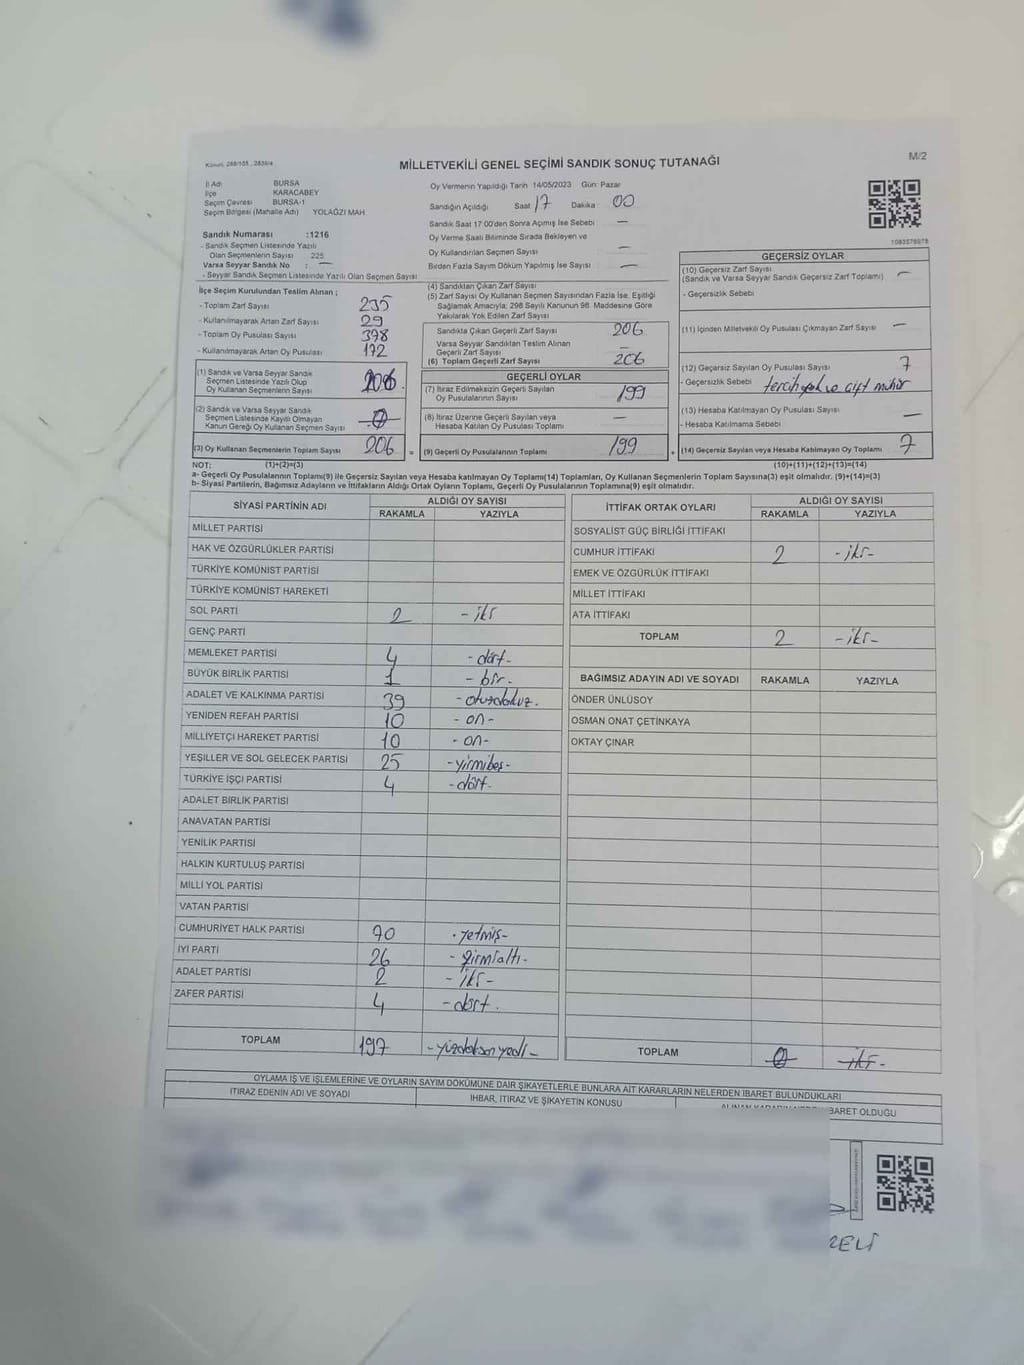 Kanun: 298/105 , 2839/4
MİLLETVEKİLİ GENEL SEÇİMİ SANDIK SONUÇ TUTANAĞI
M/2
İl Adı BURSA
İlçe KARACABEY
Seçim Çevresi BURSA-1
Seçim Bölgesi (Mahalle Adı) YOLAĞZI MAH.
Sandık Numarası :1216
- Sandık Seçmen Listesinde Yazılı
Olan Seçmenlerin Sayısı 225
Varsa Seyyar Sandık No : —
- Seyyar Sandık Seçmen Listesinde Yazılı Olan Seçmen Sayısı
Oy Vermenin Yapıldığı Tarih 14/05/2023 Gün: Pazar
Sandığın Açıldığı Saat 17 Dakika 00
Sandık Saat 17:00'den Sonra Açmış İse Sebebi —
Oy Verme Saati Bitiminde Sırada Bekleyen ve
Oy Kullandırılan Seçmen Sayısı —
Birden Fazla Sayım Döküm Yapılmış İse Sayısı —
1083576978
İlçe Seçim Kurulundan Teslim Alınan ;
- Toplam Zarf Sayısı 235
- Kullanılmayarak Artan Zarf Sayısı 29
- Toplam Oy Pusulası Sayısı 378
- Kullanılmayarak Artan Oy Pusulası 172
(1) Sandık ve Varsa Seyyar Sandık
Seçmen Listesinde Yazılı Olup
Oy Kullanan Seçmenlerin Sayısı 206
(2) Sandık ve Varsa Seyyar Sandık
Seçmen Listesinde Kayıtlı Olmayan
Kanun Gereği Oy Kullanan Seçmen Sayısı 0
(3) Oy Kullanan Seçmenlerin Toplam Sayısı 206 =
(4) Sandıktan Çıkan Zarf Sayısı
(5) Zarf Sayısı Oy Kullanan Seçmen Sayısından Fazla İse, Eşitliği
Sağlamak Amacıyla; 298 Sayılı Kanunun 98. Maddesine Göre
Yakılarak Yok Edilen Zarf Sayısı
Sandıkta Çıkan Geçerli Zarf Sayısı 206
Varsa Seyyar Sandıktan Teslim Alınan
Geçerli Zarf Sayısı —
(6) Toplam Geçerli Zarf Sayısı 206
GEÇERLİ OYLAR
(7) İtiraz Edilmeksizin Geçerli Sayılan
Oy Pusulalarının Sayısı 199
(8) İtiraz Üzerine Geçerli Sayılan veya
Hesaba Katılan Oy Pusulası Toplamı —
(9) Geçerli Oy Pusulalarının Toplamı 199 +
GEÇERSİZ OYLAR
(10) Geçersiz Zarf Sayısı
(Sandık ve Varsa Seyyar Sandık Geçersiz Zarf Toplamı) —
- Geçersizlik Sebebi
(11) İçinden Milletvekili Oy Pusulası Çıkmayan Zarf Sayısı —
(12) Geçersiz Sayılan Oy Pusulası Sayısı 7
- Geçersizlik Sebebi tercih yok ve çift mühür
(13) Hesaba Katılmayan Oy Pusulası Sayısı —
- Hesaba Katılmama Sebebi
(14) Geçersiz Sayılan veya Hesaba Katılmayan Oy Toplamı 7
NOT: (1)+(2)=(3) (10)+(11)+(12)+(13)=(14)
a- Geçerli Oy Pusulalarının Toplamı(9) ile Geçersiz Sayılan veya Hesaba katılmayan Oy Toplamı(14) Toplamları, Oy Kullanan Seçmenlerin Toplam Sayısına(3) eşit olmalıdır. (9)+(14)=(3)
b- Siyasi Partilerin, Bağımsız Adayların ve İttifakların Aldığı Ortak Oyların Toplamı, Geçerli Oy Pusulalarının Toplamına(9) eşit olmalıdır.
SİYASİ PARTİNİN ADI ALDIĞI OY SAYISI
RAKAMLA YAZIYLA
MİLLET PARTİSİ
HAK VE ÖZGÜRLÜKLER PARTİSİ
TÜRKİYE KOMÜNİST PARTİSİ
TÜRKİYE KOMÜNİST HAREKETİ
SOL PARTİ 2 - iki
GENÇ PARTİ
MEMLEKET PARTİSİ 4 - dört-
BÜYÜK BİRLİK PARTİSİ 1 - bir-
ADALET VE KALKINMA PARTİSİ 39 - otuzdokuz.
YENİDEN REFAH PARTİSİ 10 - on -
MİLLİYETÇİ HAREKET PARTİSİ 10 - on-
YEŞİLLER VE SOL GELECEK PARTİSİ 25 - yirmibeş-
TÜRKİYE İŞÇİ PARTİSİ 4 - dört-
ADALET BİRLİK PARTİSİ
ANAVATAN PARTİSİ
YENİLİK PARTİSİ
HALKIN KURTULUŞ PARTİSİ
MİLLİ YOL PARTİSİ
VATAN PARTİSİ
CUMHURİYET HALK PARTİSİ 70 - yetmiş-
İYİ PARTİ 26 - yirmialtı-
ADALET PARTİSİ 2 - iki -
ZAFER PARTİSİ 4 - dört.
TOPLAM 197 - yüzdoksanyedi -
İTTİFAK ORTAK OYLARI ALDIĞI OY SAYISI
RAKAMLA YAZIYLA
SOSYALİST GÜÇ BİRLİĞİ İTTİFAKI
CUMHUR İTTİFAKI 2 - iki-
EMEK VE ÖZGÜRLÜK İTTİFAKI
MİLLET İTTİFAKI
ATA İTTİFAKI
TOPLAM 2 - iki-
BAĞIMSIZ ADAYIN ADI VE SOYADI RAKAMLA YAZIYLA
ÖNDER ÜNLÜSOY
OSMAN ONAT ÇETİNKAYA
OKTAY ÇINAR
TOPLAM - iki -
OYLAMA İŞ VE İŞLEMLERİNE VE OYLARIN SAYIM DÖKÜMÜNE DAİR ŞİKAYETLERLE BUNLARA AİT KARARLARIN NELERDEN İBARET BULUNDUKLARI
İTİRAZ EDENİN ADI VE SOYADI
İHBAR, İTİRAZ VE ŞİKAYETİN KONUSU